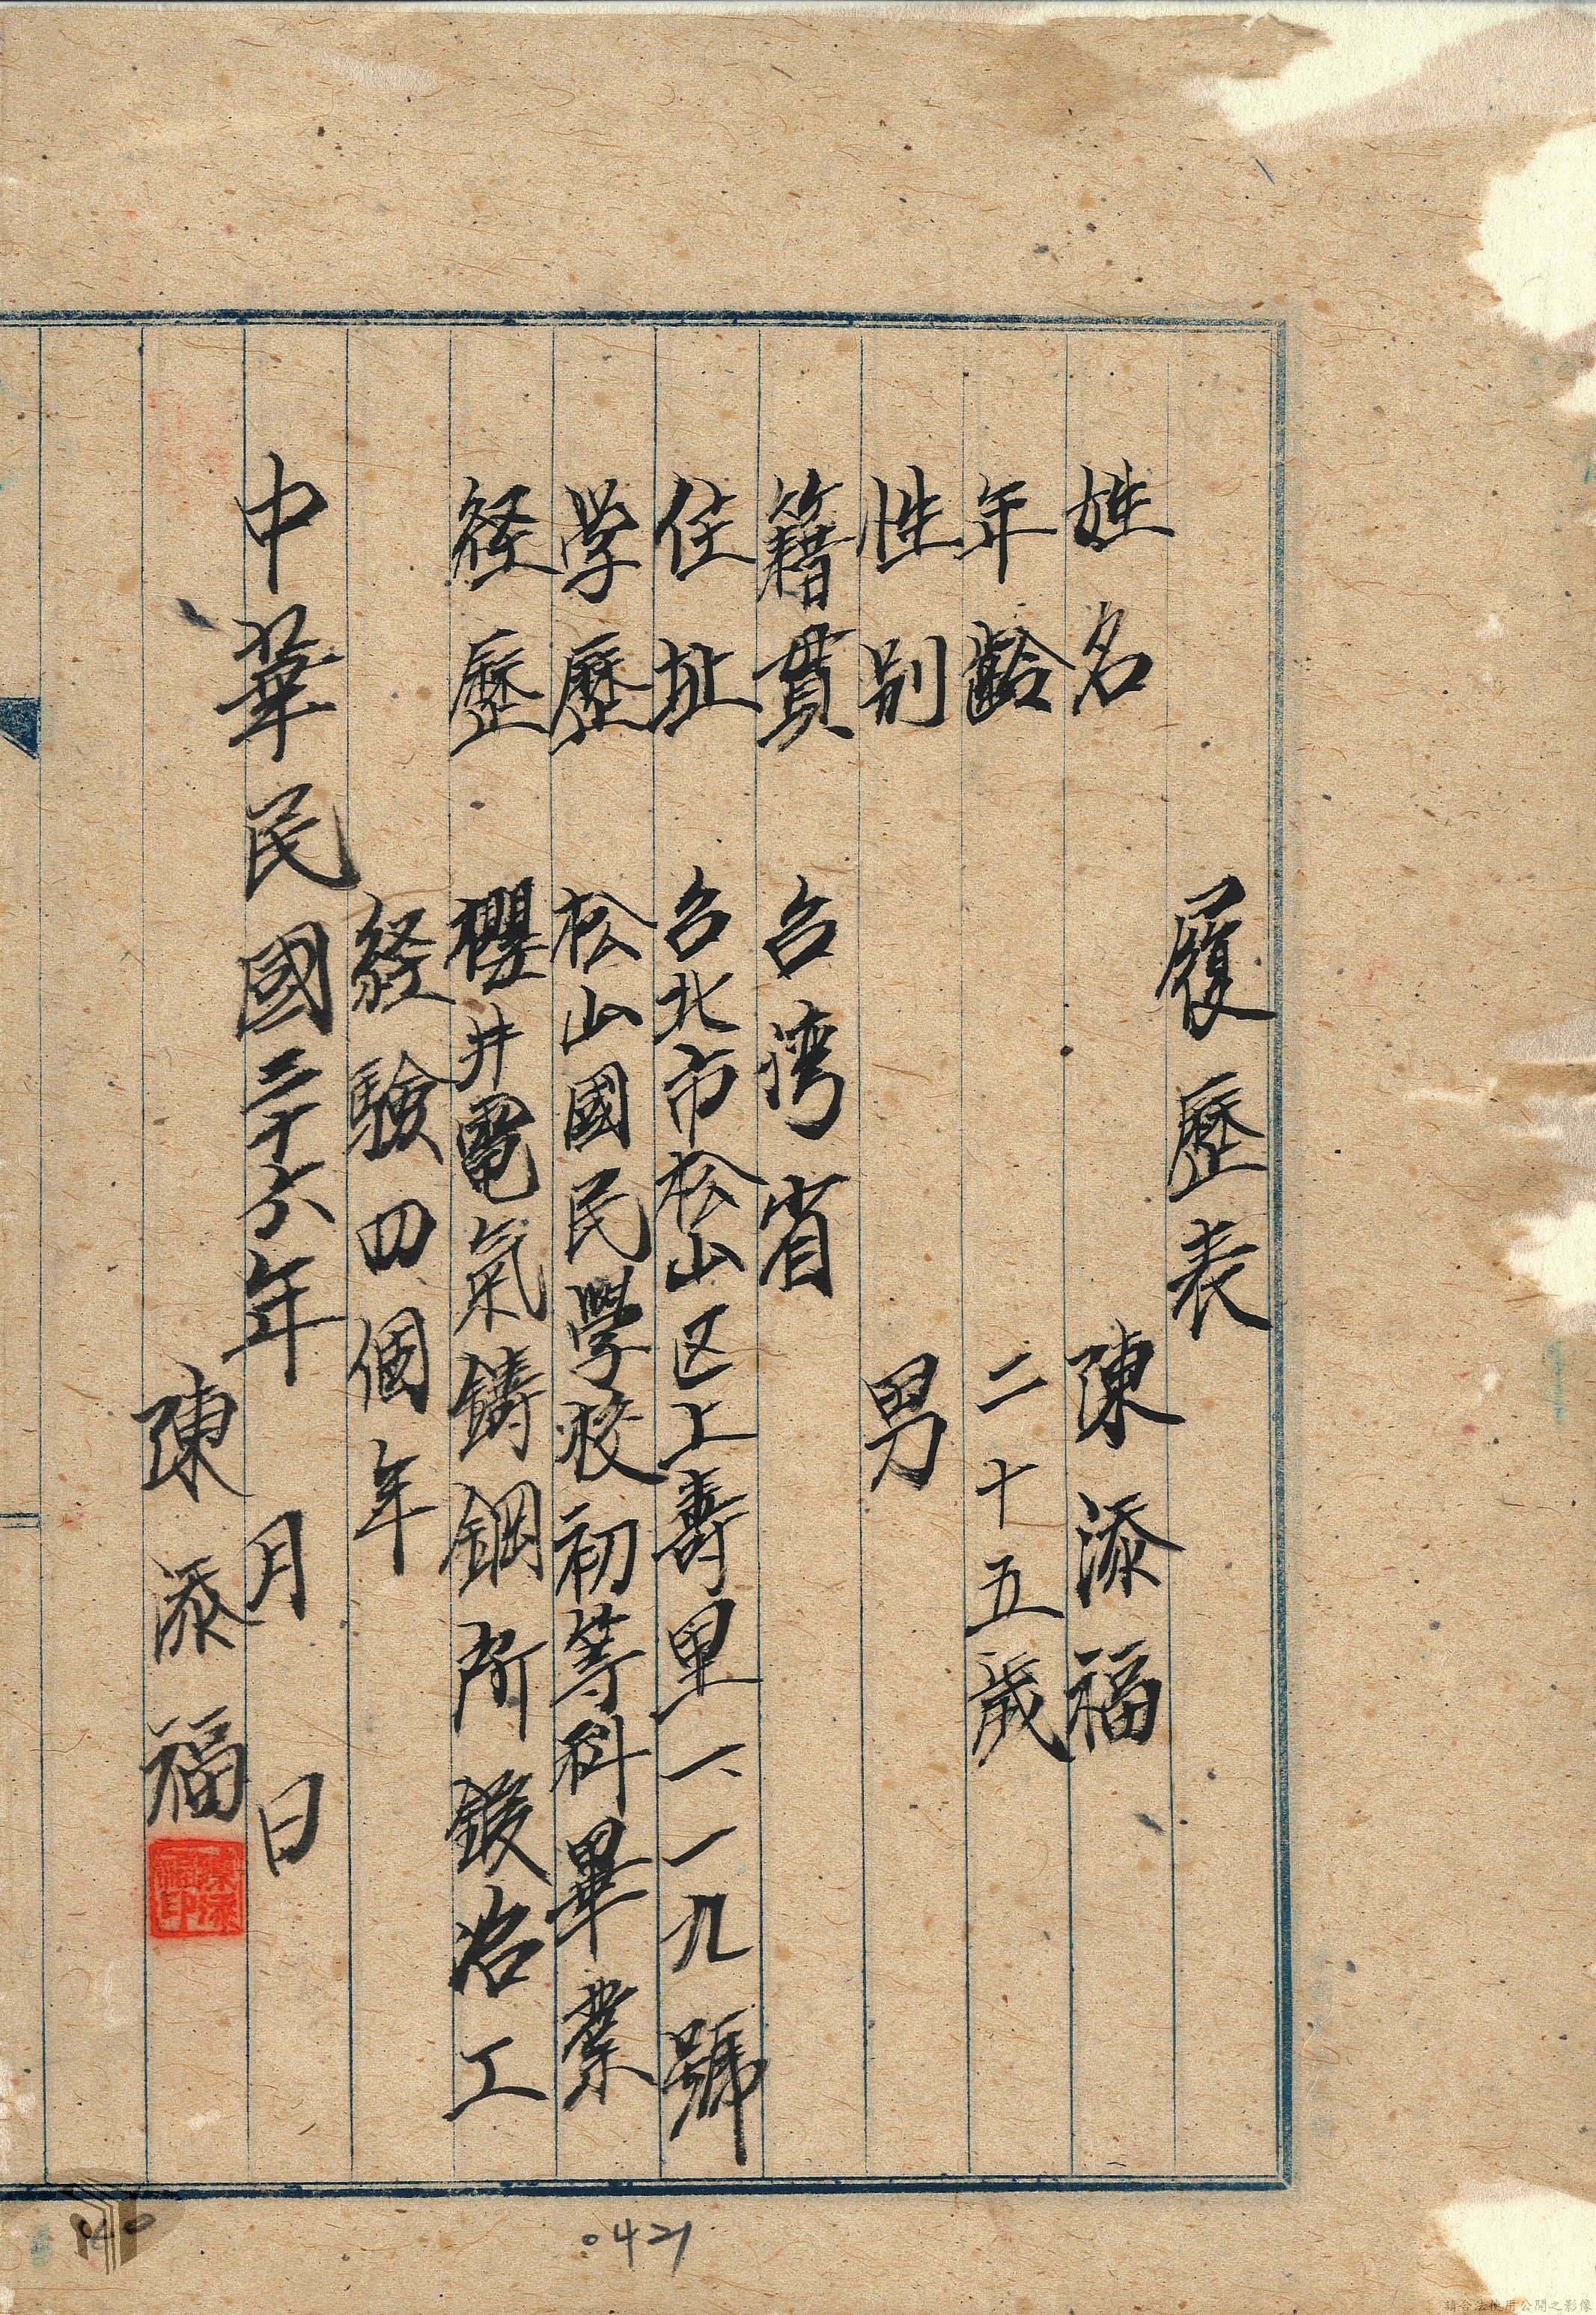 履歷表
姓名 陳添福
年齡 二十五歲
性別 男
籍貫 台湾省
住址 台北市松山区上壽里一一九號
学歷 松山國民學校初等科畢業
経歷 櫻井電氣鑄鋼所鍛冶工
経験四個年
中華民國三十六年 月 日
陳添福
陳添福印
0421
40
請合法使用公開之影像